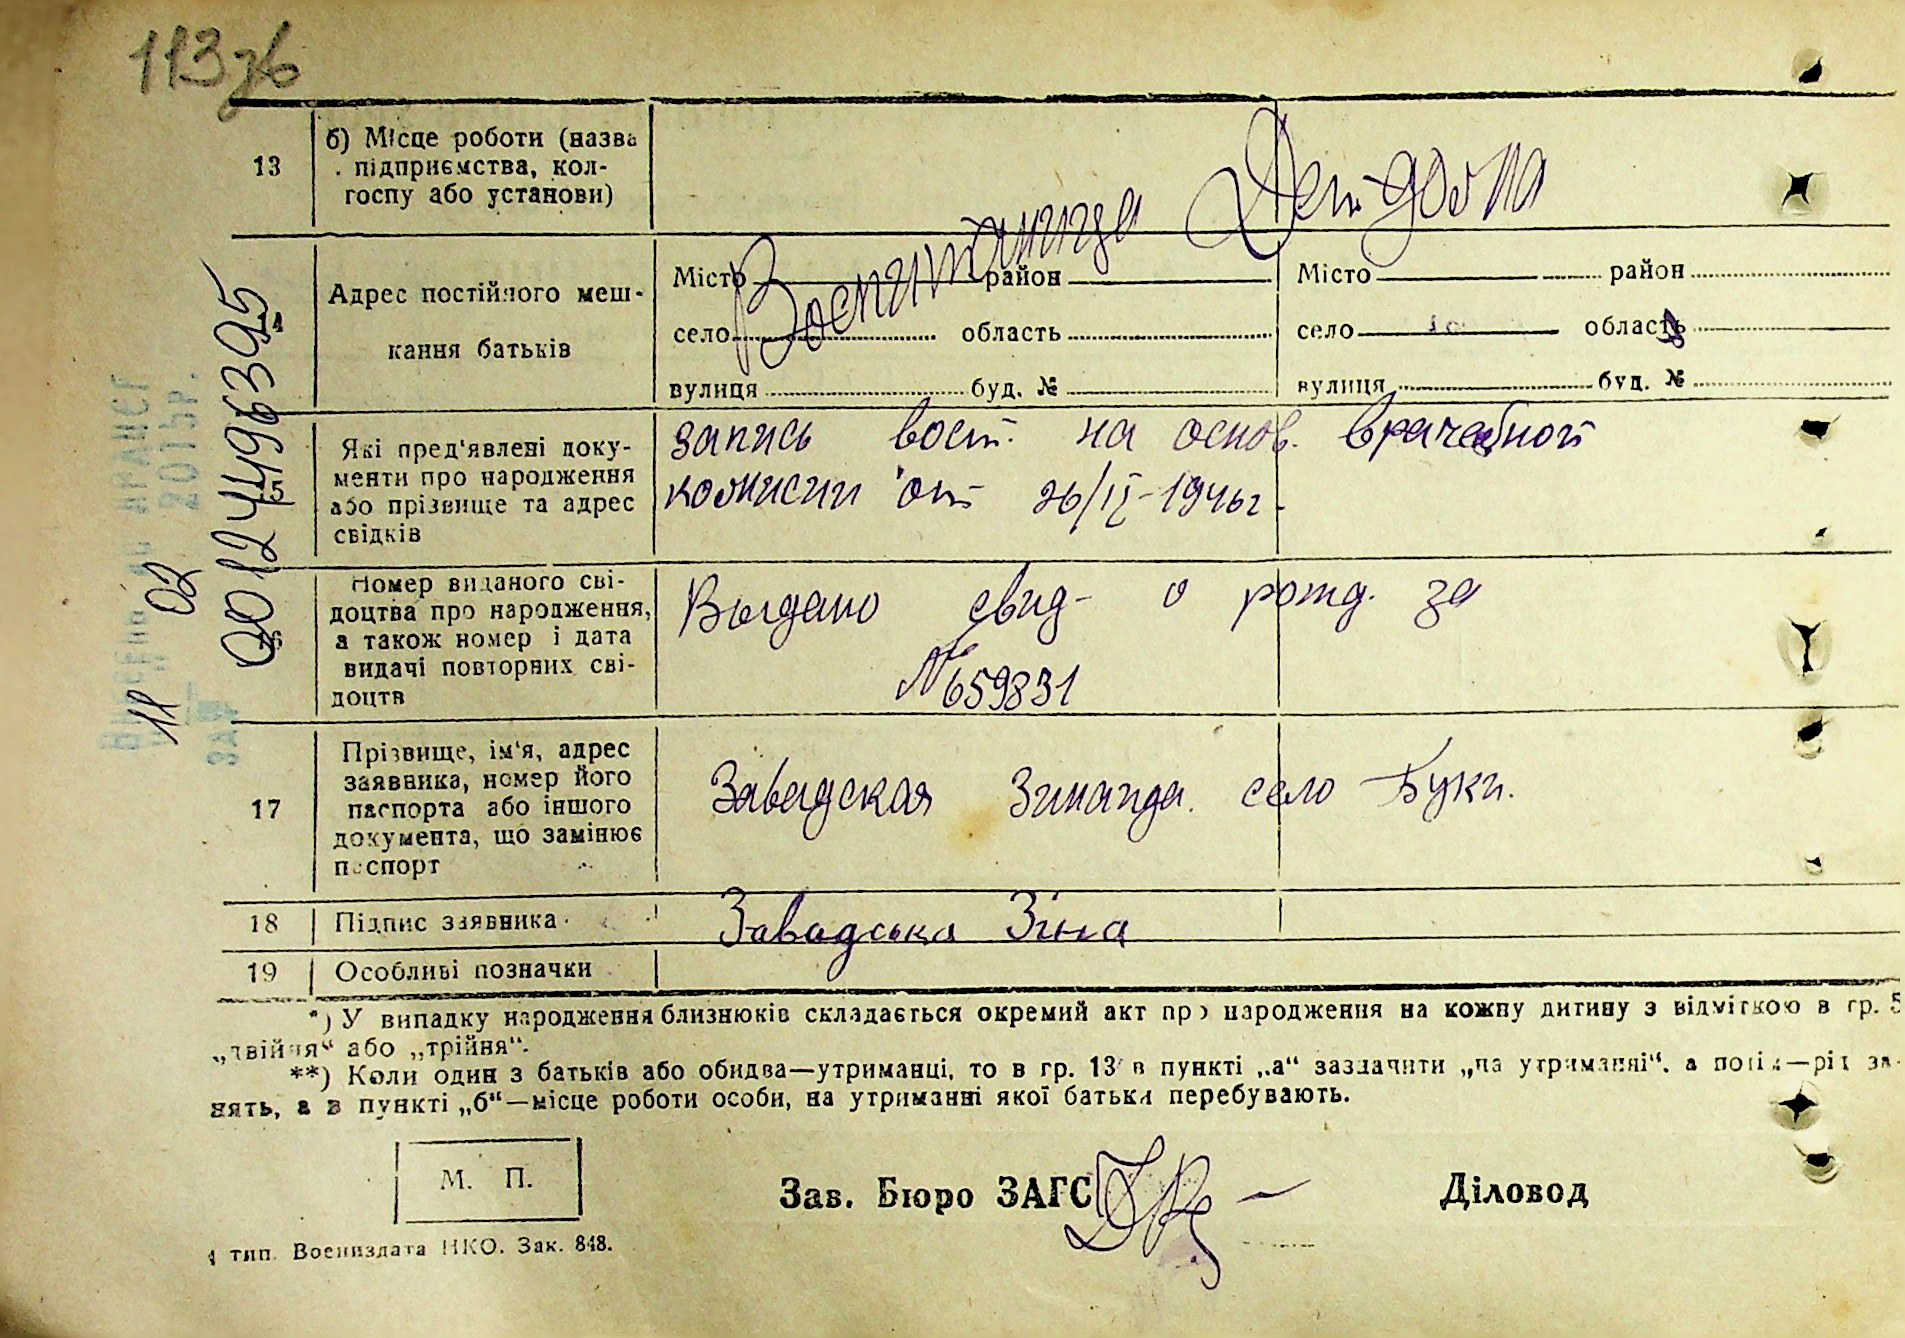 113зб
13
б) Місце роботи (назва
підприємства, кол-
госпу або установи)
Воспитаница Дет-дома
Адрес постійного меш-
кання батьків
Місто район Місто район
село область село область
вулиця буд. № вулиця буд. №
Які пред'явлені доку-
менти про народження
або прізвище та адрес
свідків
запись вост. на основ. врачебной
комисии от 26/II-1946г.
Номер виданого сві-
доцтва про народження,
а також номер і дата
видачі повторних сві-
доцтв
Выдано свид- о рожд. за
№659831
17
Прізвище, ім'я, адрес
заявника, номер його
паспорта або іншого
документа, що замінює
паспорт
Завадская Зинаида. село Буки.
18 Підпис заявника
Завадська Зіна
19 Особливі позначки
*) У випадку народження близнюків складається окремий акт про народження на кожну дитину з відміткою в гр. 5
„двійня“ або „трійня“.
**) Коли один з батьків або обидва—утриманці, то в гр. 13 в пункті „а“ зазначити „на утриманні“, а потім—рід за-
нять, а в пункті „б“—місце роботи особи, на утриманні якої батьки перебувають.
М. П.
Зав. Бюро ЗАГС Діловод
тип. Воениздата НКО. Зак. 848.
00124496395
11 02
2015р.